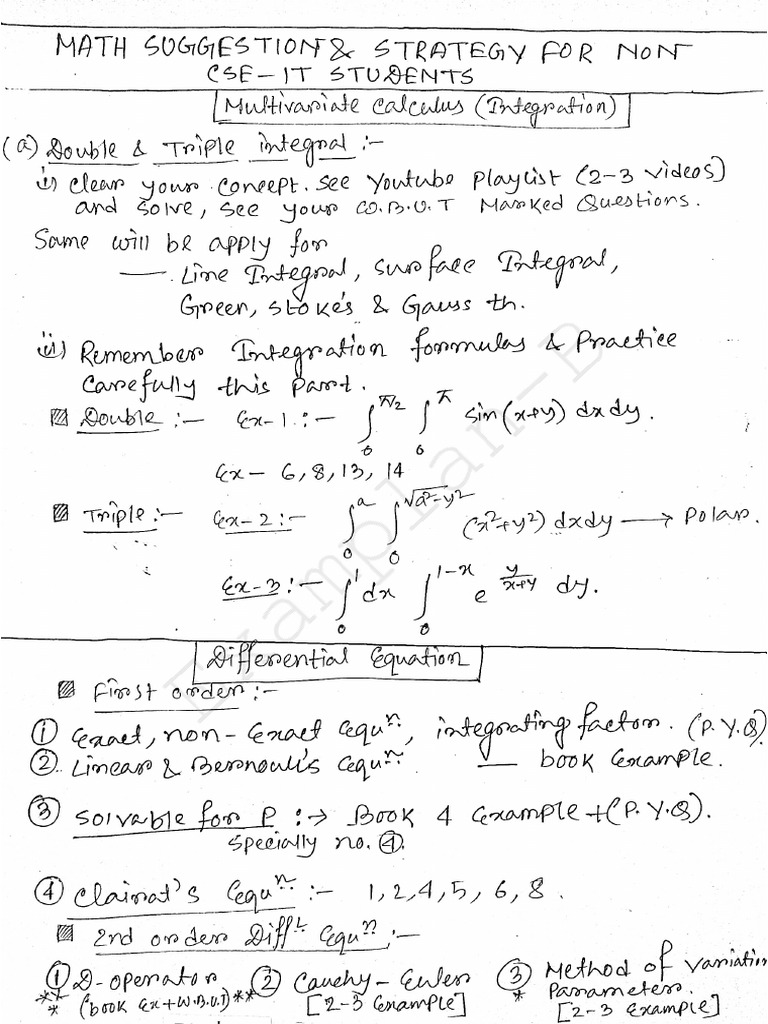 MATH SUGGESTION & STRATEGY FOR NON
CSE-IT STUDENTS
Multivariate Calculus (Integration)
(a) Double & Triple integral :-
i) Clear your concept. See Youtube Playlist (2-3 videos)
and solve, see your W.B.U.T Marked Questions.
Same will be apply for
— Line Integral, surface Integral,
Green, stoke's & Gauss th.
ii) Remember Integration formulas & Practice
carefully this part.
Double :- Ex-1 :- ∫₀^(π/2) ∫₀^π sin(x+y) dx dy.
Ex- 6, 8, 13, 14
Triple :- Ex-2 :- ∫₀^a ∫₀^(√(a²-y²)) (x²+y²) dx dy → Polar.
Ex-3 :- ∫₀^1 dx ∫₀^(1-x) e^(y/(x+y)) dy.
Differential Equation
First order :-
① Exact, non-Exact Equⁿ, integrating factor. (P.Y.Q)
② Linear & Bernouli's Equⁿ — book Example.
③ Solvable for P :→ Book 4 Example + (P.Y.Q).
specially no. ④.
④ Clairat's Equⁿ :- 1, 2, 4, 5, 6, 8.
2nd order Diffᴸ Equⁿ :-
① D-operator ② Cauchy-Euler ③ Method of variation
*** (book Ex + W.B.U.T) ** [2-3 Example] * Parameter.
[2-3 Example]
Examplan-B